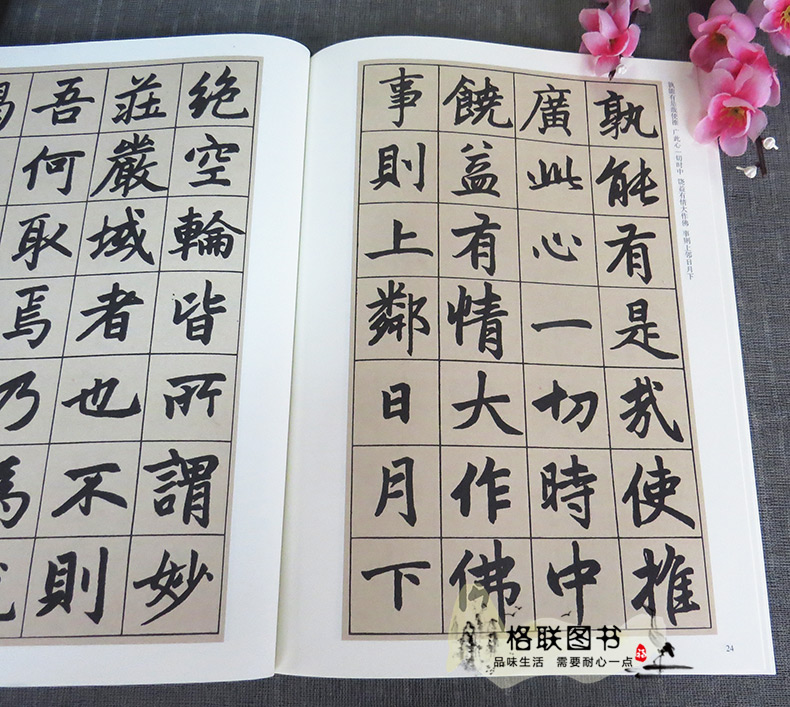 絶空輪皆所謂妙
莊嚴域者也不則
吾何取焉乃
孰能有是哉使推
廣此心一切時中
饒益有情大作佛
事則上鄰日月下
孰能有是哉使推 广此心一切时中 饶益有情大作佛 事则上邻日月下
24
格联图书
品味生活 需要耐心一点